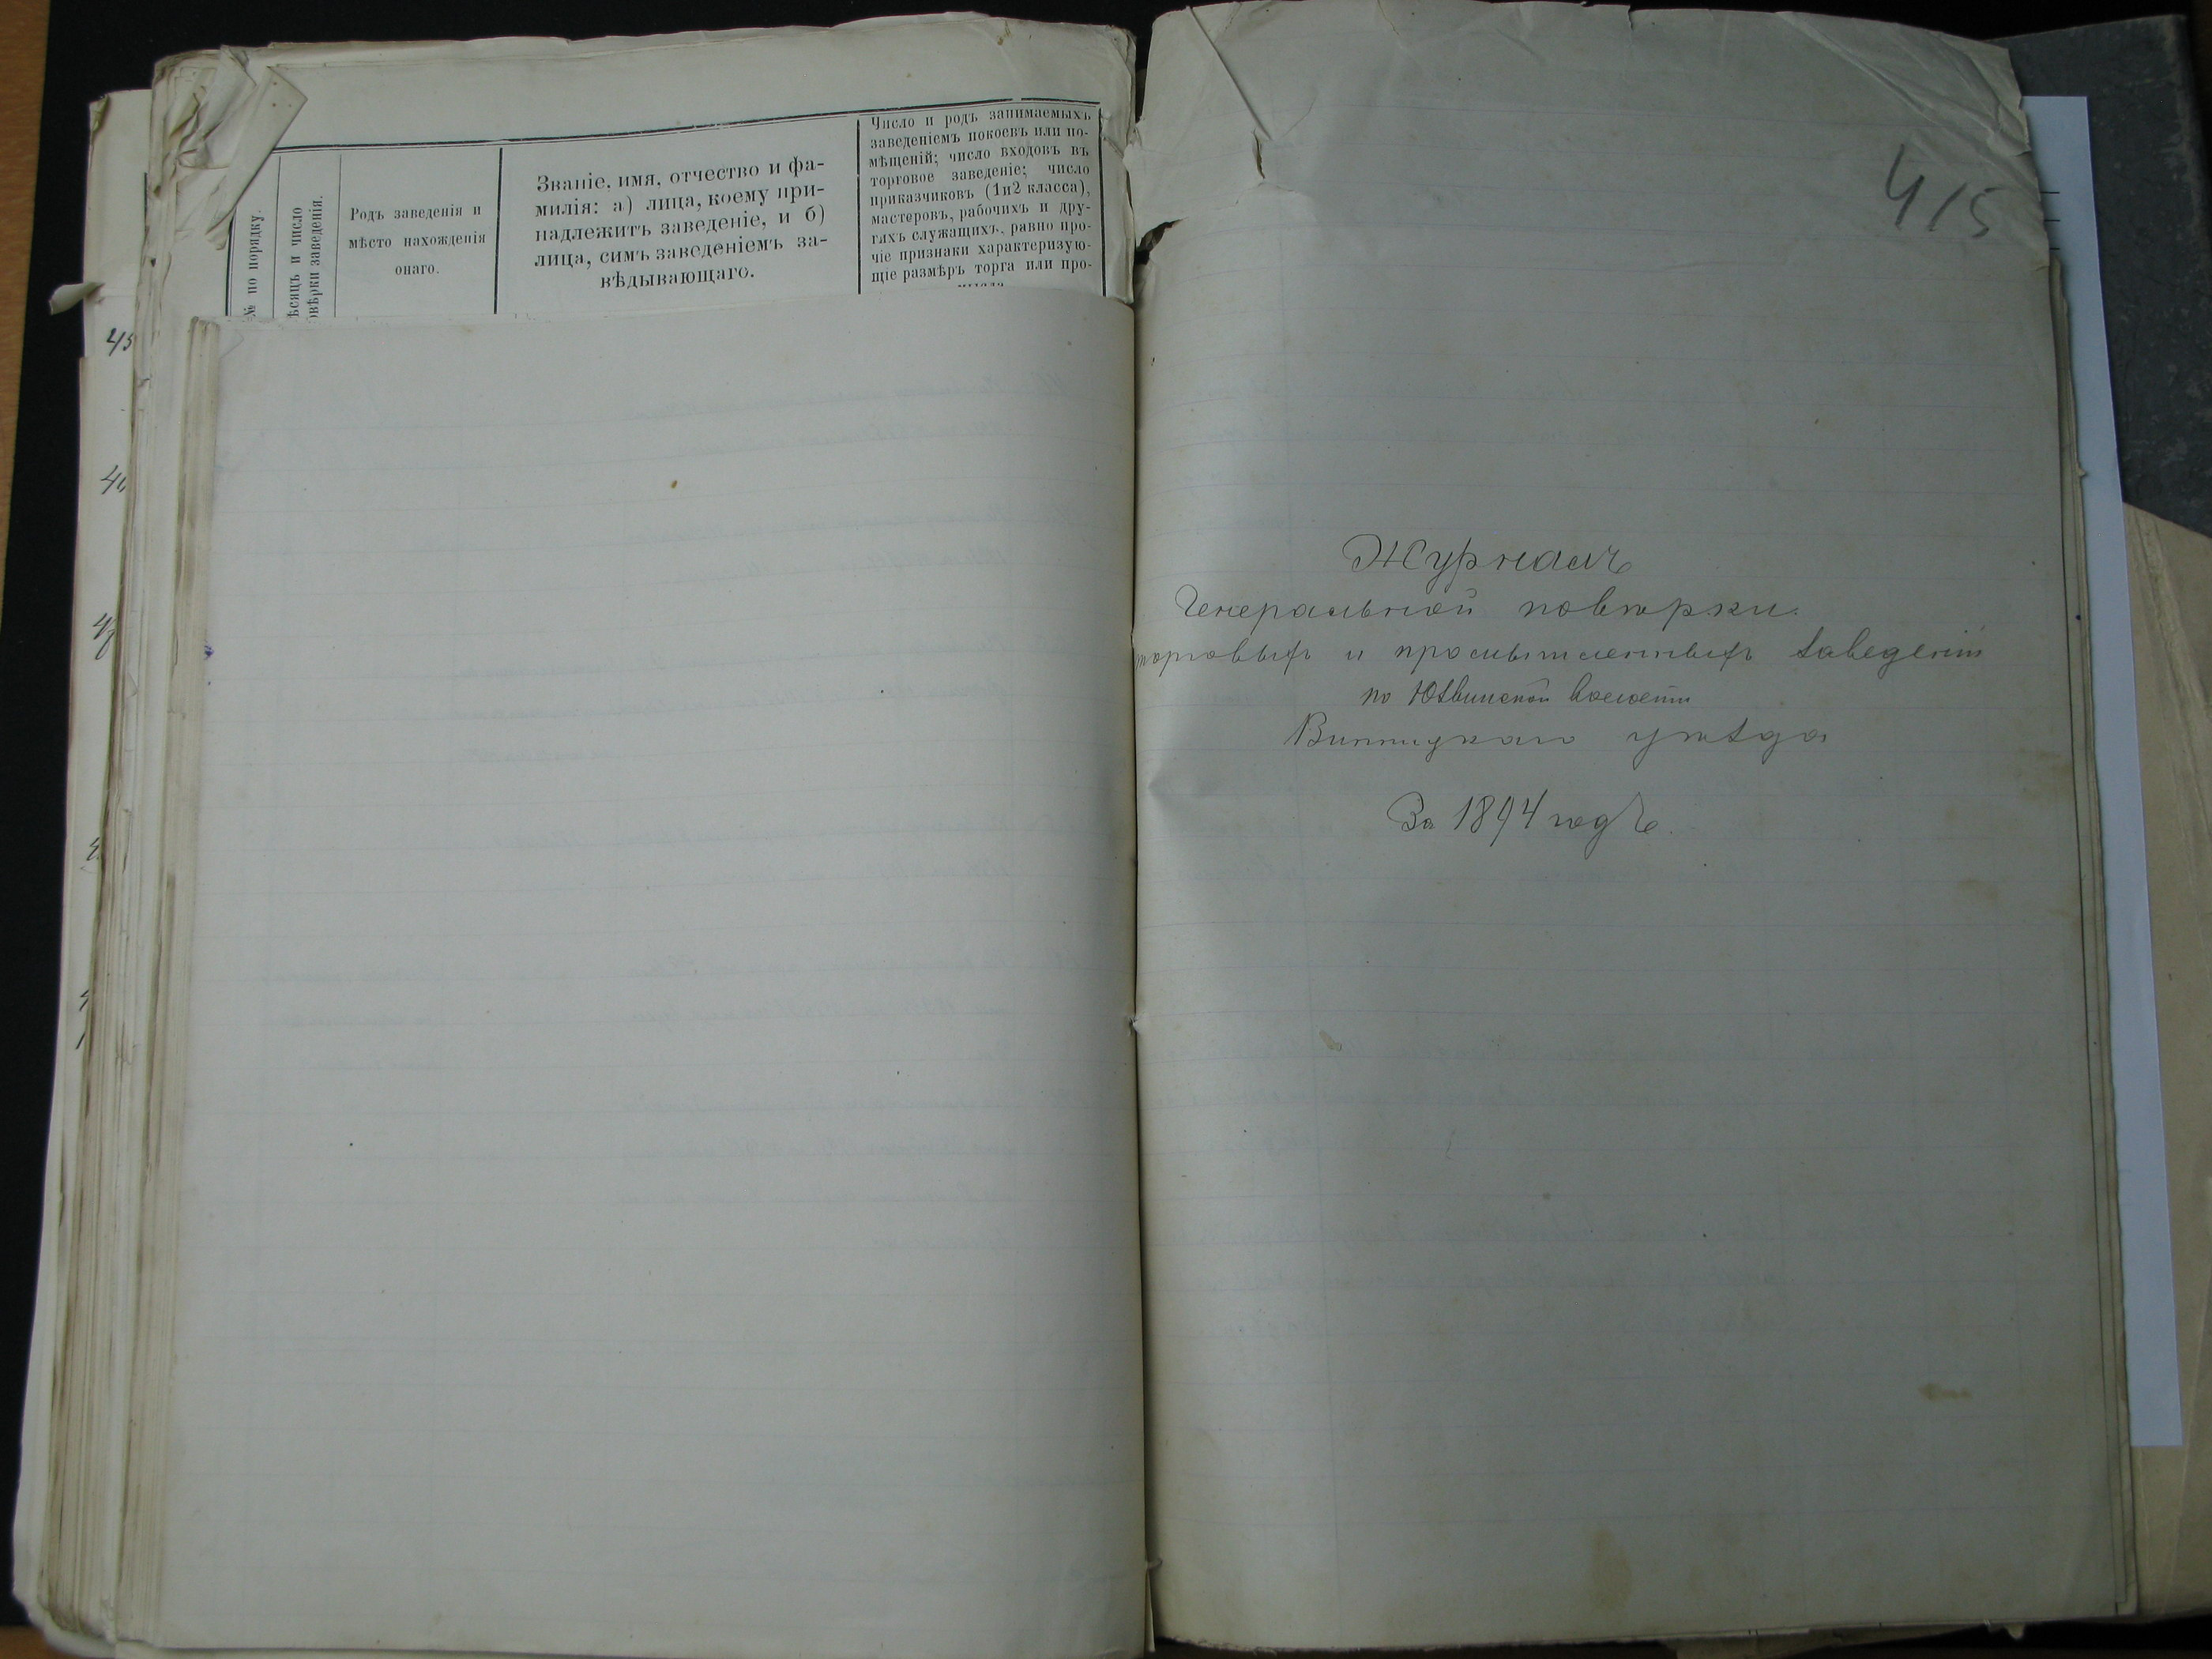 № по порядку.
ѣсяцъ и число
овѣрки заведенія.
Родъ заведенія и
мѣсто нахожденія
онаго.
Званіе, имя, отчество и фа-
милія: а) лица, коему при-
надлежитъ заведеніе, и б)
лица, симъ заведеніемъ за-
вѣдывающаго.
Число и родъ занимаемыхъ
заведеніемъ покоевъ или по-
мѣщеній; число входовъ въ
торговое заведеніе; число
приказчиковъ (1и2 класса),
мастеровъ, рабочихъ и дру-
гихъ служащихъ, равно про-
чіе признаки характеризую-
щіе размѣръ торга или про-
45
46
47
415
Журналъ
Генеральной повѣрки
торговыхъ и промышленныхъ заведеній
по Юзвинской волости
Винницкаго уѣзда
За 1894 годъ.